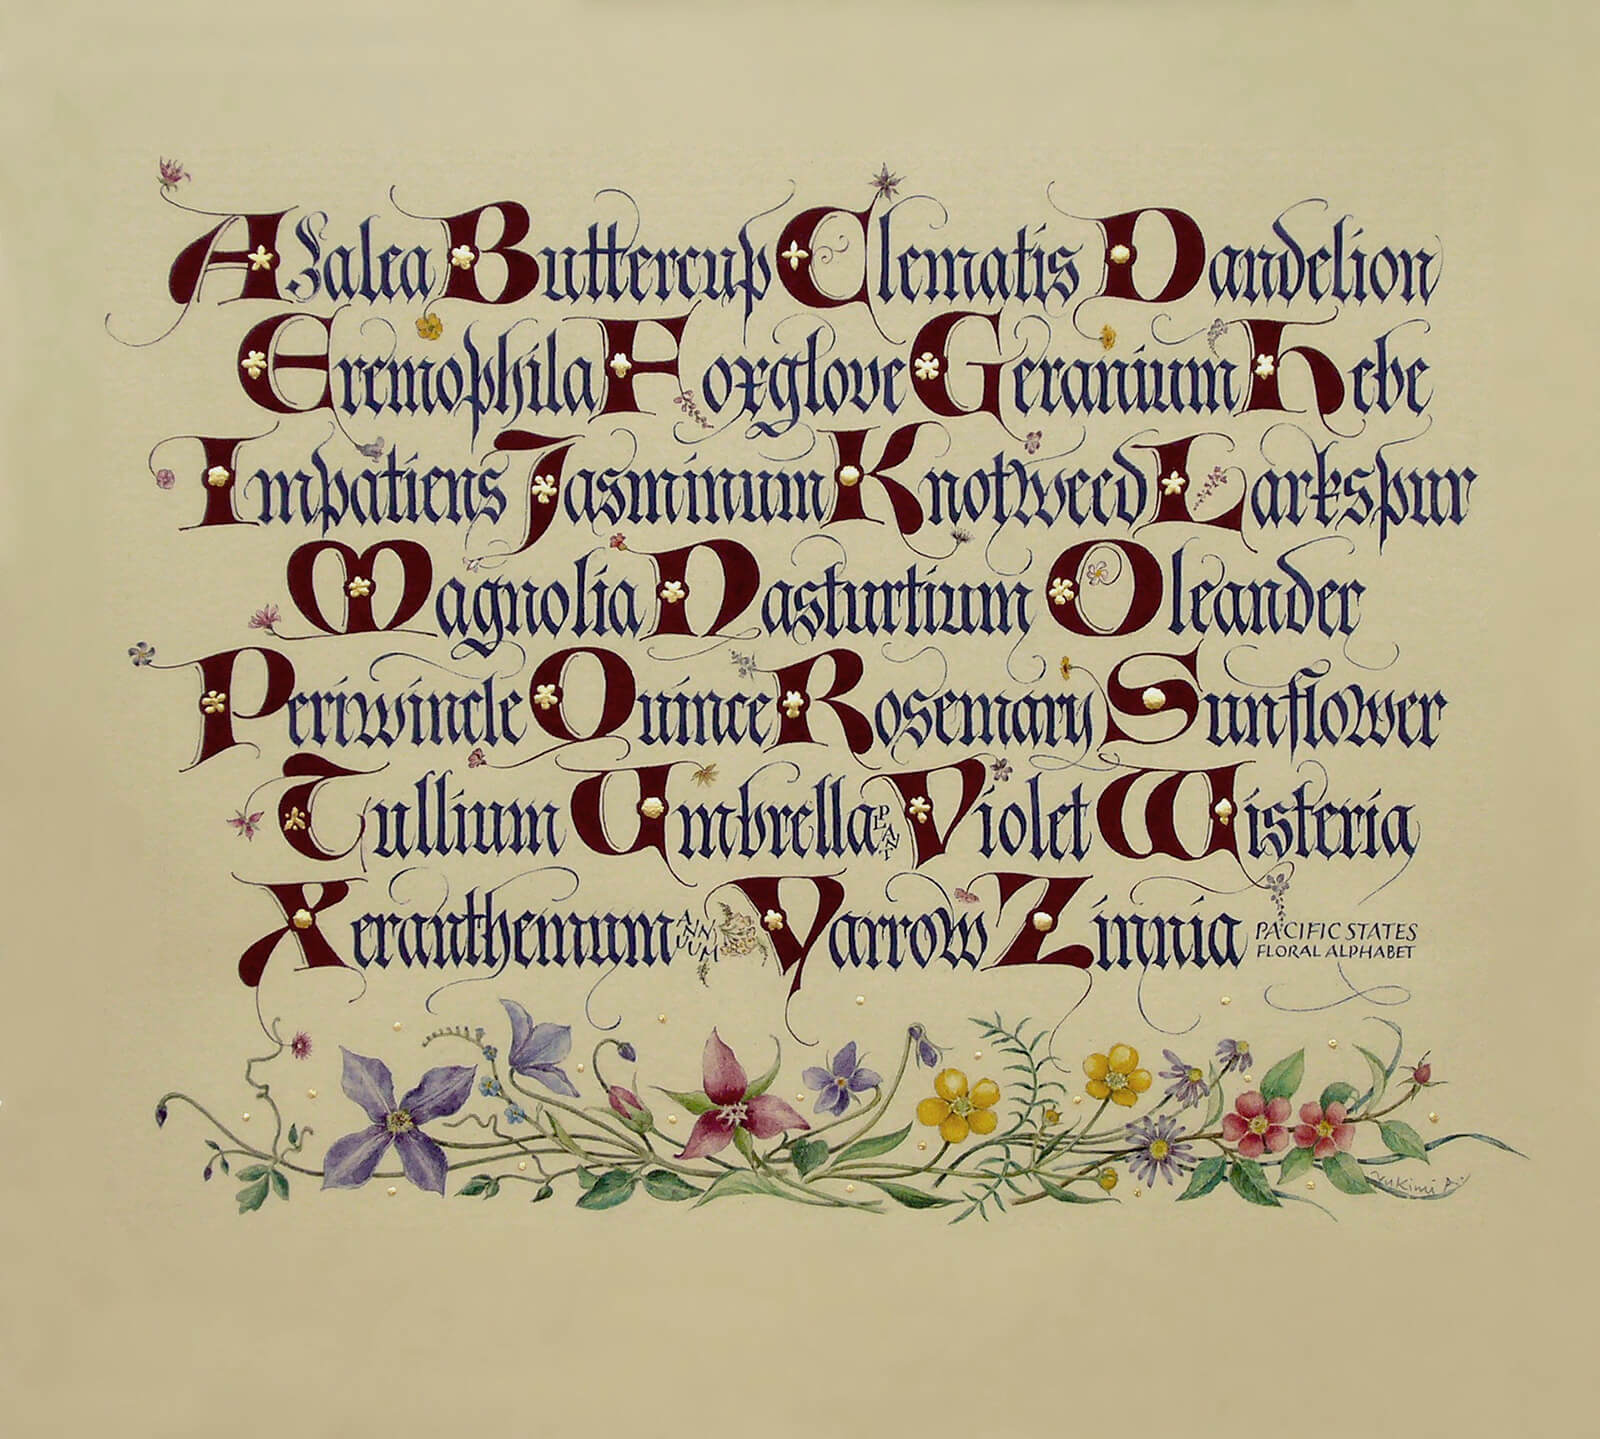 Azalea Buttercup Clematis Dandelion
Eremophila Foxglove Geranium Hebe
Impatiens Jasminum Knotweed Larkspur
Magnolia Nasturtium Oleander
Periwincle Quince Rosemary Sunflower
Tullium Umbrella PLANT Violet Wisteria
Xeranthemum ANNUUM Yarrow Zinnia PACIFIC STATES
FLORAL ALPHABET
Yukimi A.